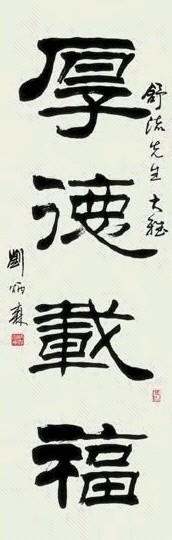 舒流先生大雅
厚德載福
劉炳森